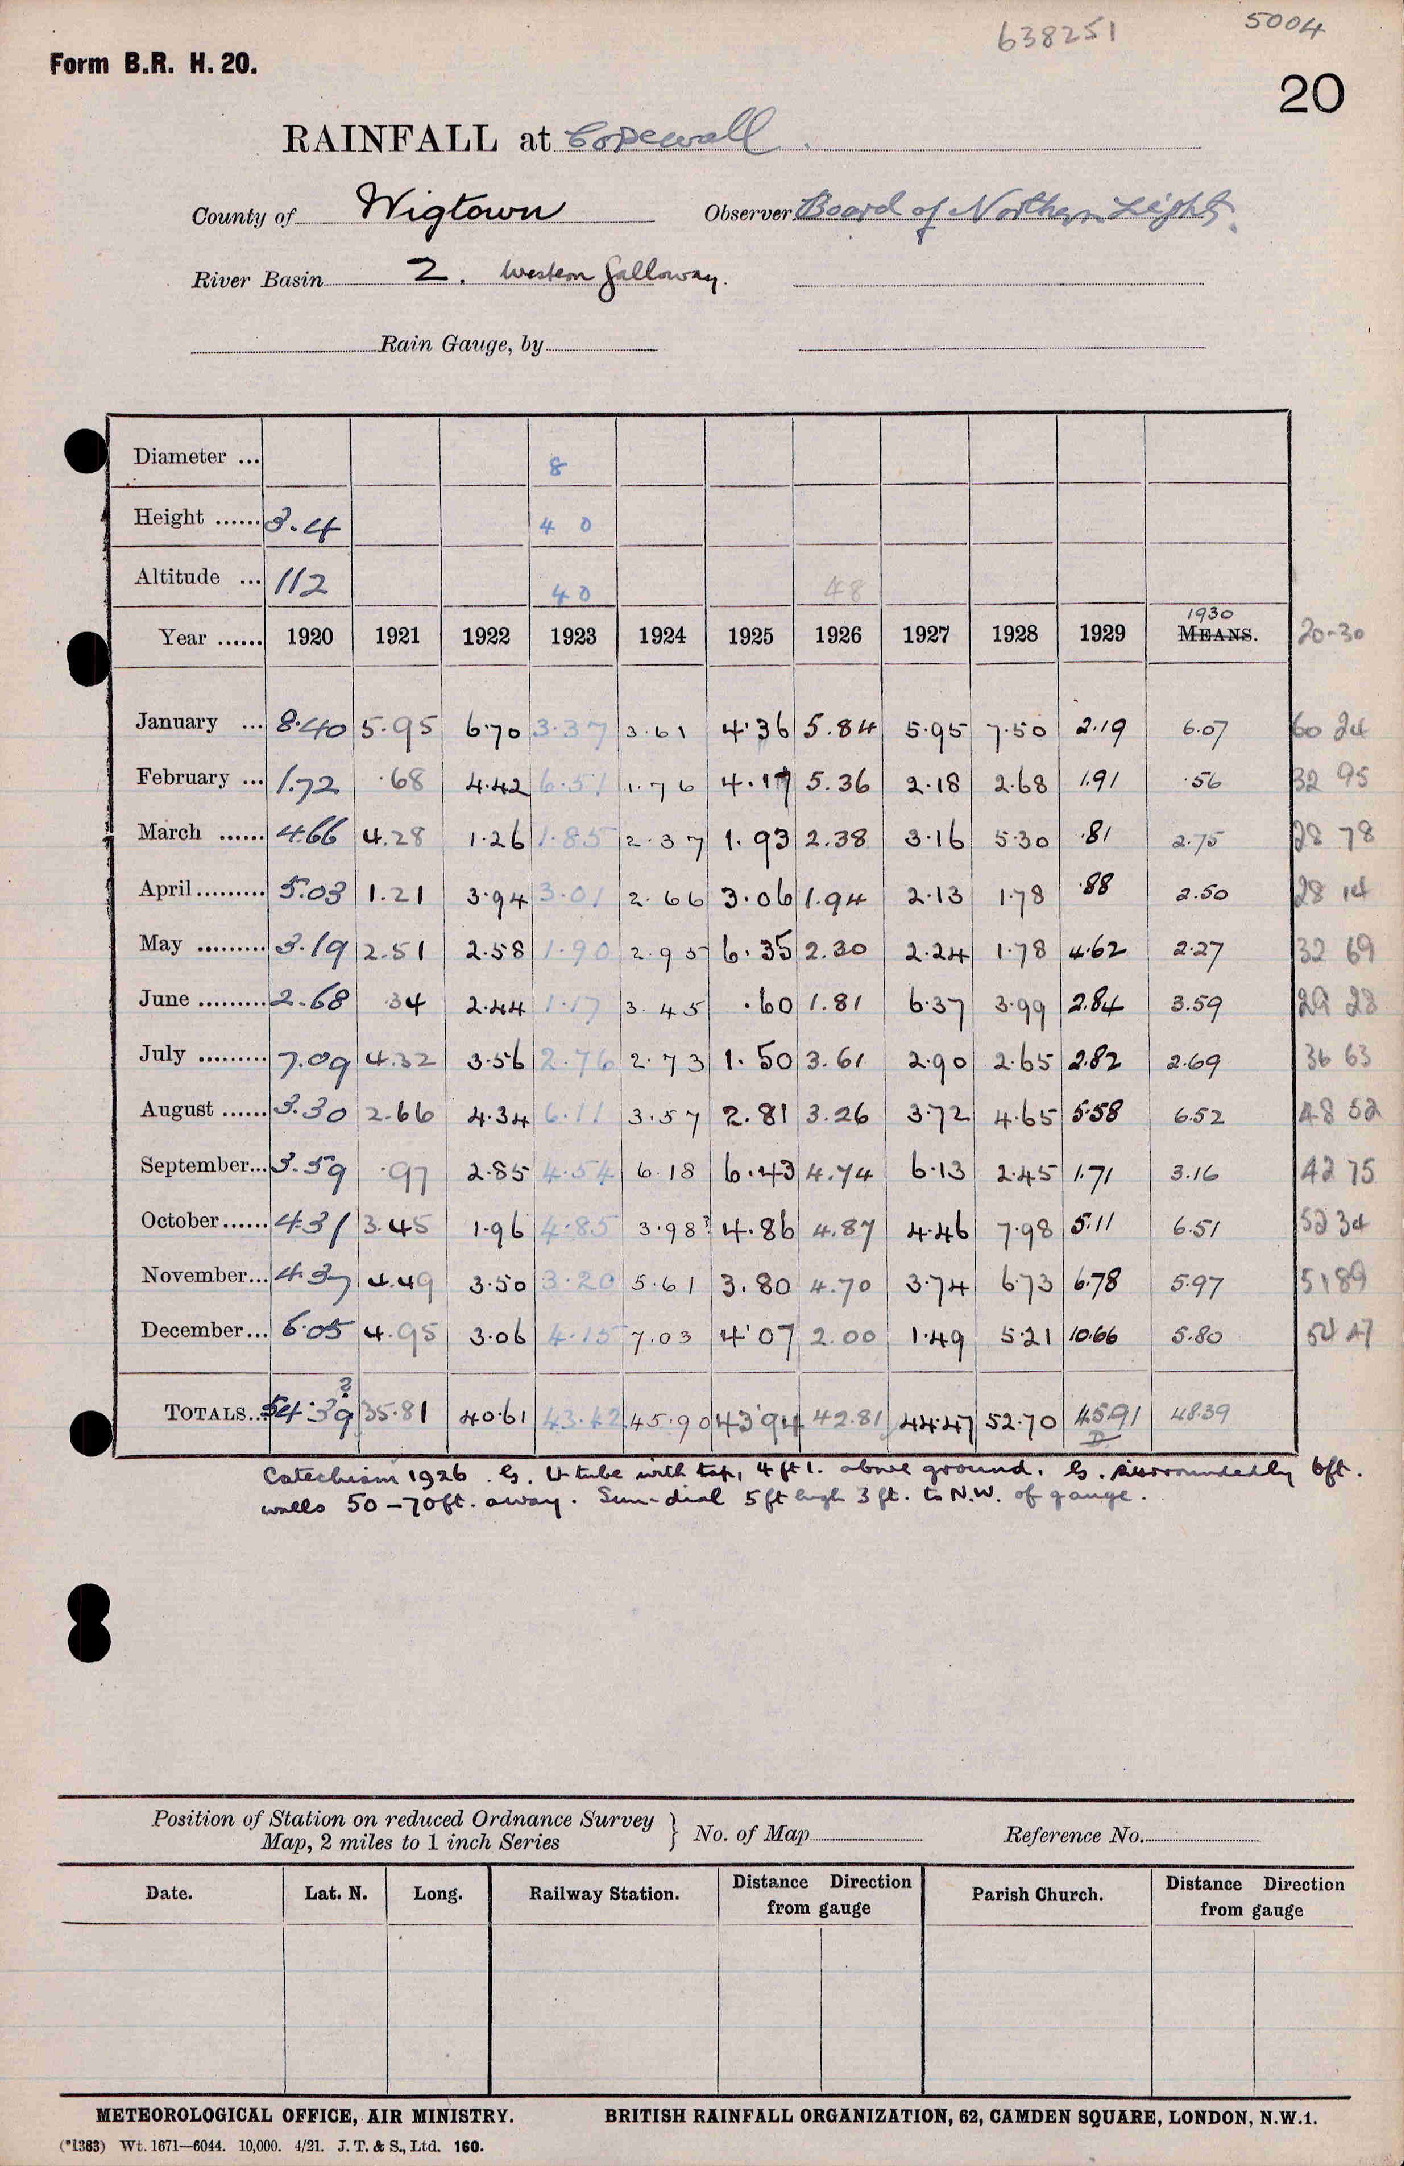 638251 5004
Form B.R. H. 20.
20
RAINFALL at Corsewall.
County of Wigtown Observer Board of Northern Lights.
River Basin 2. Western Galloway.
Rain Gauge, by
Diameter ... 8
Height ...... 3.4 4 0
Altitude ... 112 40 48
1930
Year ...... 1920 1921 1922 1923 1924 1925 1926 1927 1928 1929 MEANS. 20-30
January ... 8.40 5.95 6.70 3.37 3.61 4.36 5.84 5.95 7.50 2.19 6.07 60 24
February ... 1.72 .68 4.42 6.51 1.76 4.17 5.36 2.18 2.68 1.91 .56 32 95
March ...... 4.66 4.28 1.26 1.85 2.37 1.93 2.38 3.16 5.30 .81 2.75 28 78
April......... 5.03 1.21 3.94 3.01 2.66 3.06 1.94 2.13 1.78 .88 2.50 28 14
May ......... 3.19 2.51 2.58 1.90 2.95 6.35 2.30 2.24 1.78 4.62 2.27 32 69
June ......... 2.68 .34 2.44 1.17 3.45 .60 1.81 6.37 3.99 2.84 3.59 29 28
July ......... 7.09 4.32 3.56 2.76 2.73 1.50 3.61 2.90 2.65 2.82 2.69 36 63
August ...... 3.30 2.66 4.34 6.11 3.57 2.81 3.26 3.72 4.65 5.58 6.52 48 52
September... 3.59 .97 2.85 4.54 6.18 6.43 4.74 6.13 2.45 1.71 3.16 42 75
October...... 4.31 3.45 1.96 4.85 3.98? 4.86 4.87 4.46 7.98 5.11 6.51 52 34
November... 4.37 4.49 3.50 3.20 5.61 3.80 4.70 3.74 6.73 6.78 5.97 51 89
December... 6.05 4.95 3.06 4.15 7.03 4.07 2.00 1.49 5.21 10.66 5.80 54 47
TOTALS... 54.39 ? 35.81 40.61 43.42 45.90 43.94 42.81 44.47 52.70 45.91 48.39
Catechism 1926. G. U-tube with tap, 4 ft 1. above ground. G. surrounded by 6ft.
walls 50-70ft. away. Sun-dial 5 ft high 3 ft. to N.W. of gauge.
Position of Station on reduced Ordnance Survey
Map, 2 miles to 1 inch Series } No. of Map Reference No.
Date. Lat. N. Long. Railway Station. Distance Direction from gauge Parish Church. Distance Direction from gauge
METEOROLOGICAL OFFICE, AIR MINISTRY. BRITISH RAINFALL ORGANIZATION, 62, CAMDEN SQUARE, LONDON, N.W.1.
(*1383) Wt. 1671—6044. 10,000. 4/21. J. T. & S., Ltd. 160.